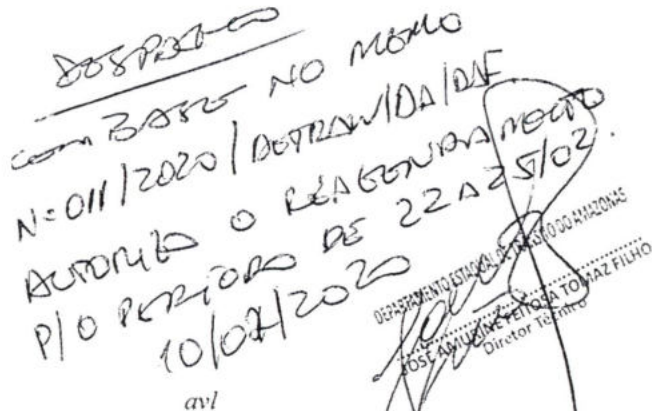 DESPACHO
COM BASE NO MEMO
Nº 011/2020/DETRAN/DA/DAF
AUTORIZO O REAGENDAMENTO
P/O PERÍODO DE 22 A 25/02.
10/02/2020
DEPARTAMENTO ESTADUAL DE TRÂNSITO DO AMAZONAS
JOSÉ AMURINE FEITOSA TOMAZ FILHO
Diretor Técnico
avl